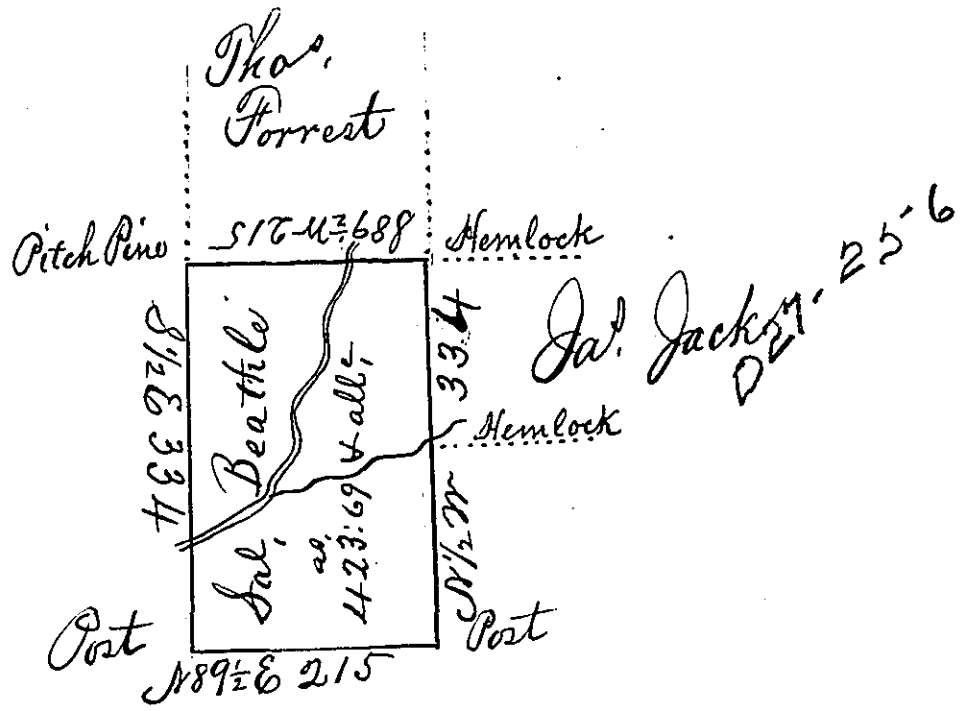 Thos.
Forrest
Pitch Pine
S89½W 215
Hemlock
S½E 334
Sal, Beathle
as.
423:69 & alle,
N½W 334
Jas. Jackson
D 27. 25 . 6
Hemlock
Post
Post
N89½E 215